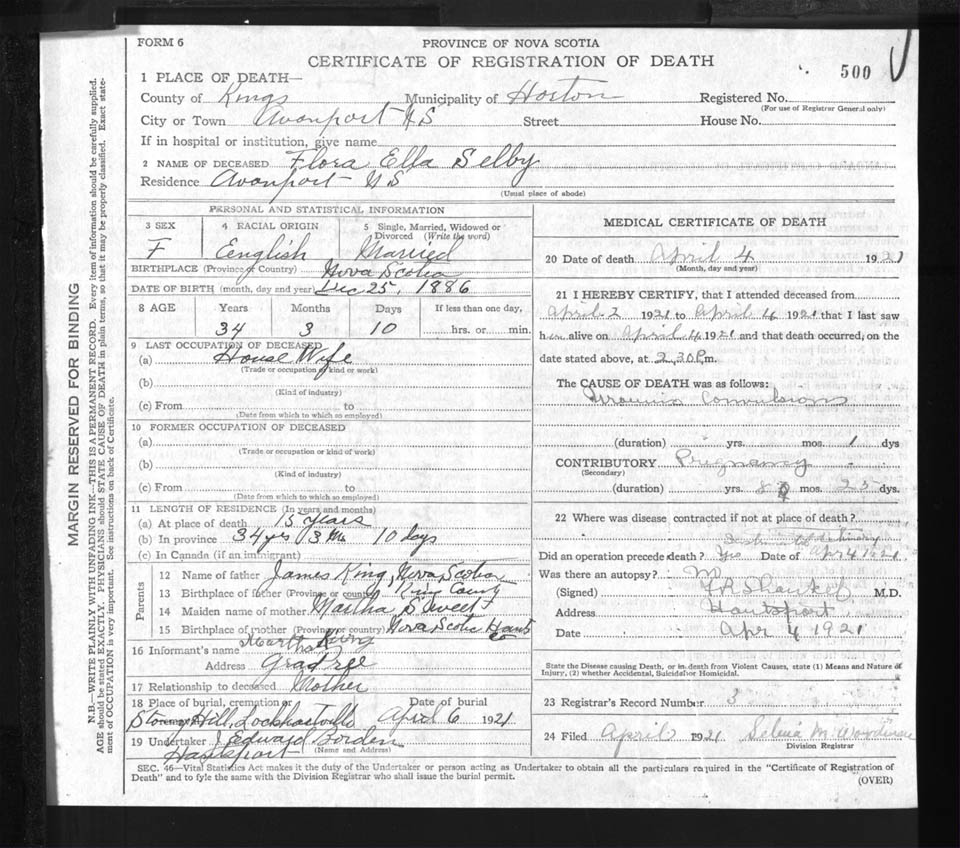 FORM 6
PROVINCE OF NOVA SCOTIA
CERTIFICATE OF REGISTRATION OF DEATH
500
1 PLACE OF DEATH—
County of Kings Municipality of Horton Registered No.
(For use of Registrar General only)
City or Town Avonport N S Street House No.
If in hospital or institution, give name
2 NAME OF DECEASED Flora Ella Selby
Residence Avonport N S
(Usual place of abode)
PERSONAL AND STATISTICAL INFORMATION
3 SEX 4 RACIAL ORIGIN 5 Single, Married, Widowed or Divorced (Write the word)
F English Married
BIRTHPLACE (Province or Country) Nova Scotia
DATE OF BIRTH (month, day and year) Dec 25, 1886
8 AGE Years Months Days If less than one day,
34 3 10 hrs. or min.
9 LAST OCCUPATION OF DECEASED
(a) House Wife
(Trade or occupation of kind or work)
(b)
(Kind of industry)
(c) From to
(Date from which to which so employed)
10 FORMER OCCUPATION OF DECEASED
(a)
(Trade or occupation or kind of work)
(b)
(Kind of industry)
(c) From to
(Date from which to which so employed)
11 LENGTH OF RESIDENCE (In years and months)
(a) At place of death 15 years
(b) In province 34 yrs 3 Ms 10 days
(c) In Canada (if an immigrant)
Parents
12 Name of father James King, Nova Scotia
13 Birthplace of father (Province or country) King County
14 Maiden name of mother Martha Sweet
15 Birthplace of mother (Province or country) Nova Scotia Hants Co
16 Informant's name Martha King
Address Grad Pre
17 Relationship to deceased Mother
18 Place of burial, cremation Date of burial
Hill, Lockhartville April 6 1921
19 Undertaker J. Edward Borden
(Name and Address)
Hantsport
MEDICAL CERTIFICATE OF DEATH
20 Date of death April 4 1921
(Month, day and year)
21 I HEREBY CERTIFY, that I attended deceased from
April 2 1921 to April 4 1921 that I last saw
her alive on April 4 1921 and that death occurred, on the
date stated above, at 2.30 P.m.
The CAUSE OF DEATH was as follows:
Uraemia Convulsions
(duration) yrs. mos. 1 dys
CONTRIBUTORY Pregnancy
(Secondary)
(duration) yrs. 8 mos. 25 dys.
22 Where was disease contracted if not at place of death?
Did an operation precede death? Yes Date of Apr 4 1921
Was there an autopsy?
(Signed) M.D.
Address Hantsport
Date Apr 4 1921
State the Disease causing Death, or in death from Violent Causes, state (1) Means and Nature of
Injury, (2) whether Accidental, Suicidal or Homicidal.
23 Registrar's Record Number 3
24 Filed April 1921 Selina M.
Division Registrar
SEC. 46—Vital Statistics Act makes it the duty of the Undertaker or person acting as Undertaker to obtain all the particulars required in the "Certificate of Registration of
Death" and to fyle the same with the Division Registrar who shall issue the burial permit.
(OVER)
MARGIN RESERVED FOR BINDING
N.B.—WRITE PLAINLY WITH UNFADING INK—THIS IS A PERMANENT RECORD. Every item of information should be carefully supplied.
AGE should be stated EXACTLY. PHYSICIANS should STATE CAUSE OF DEATH in plain terms, so that it may be properly classified. Exact state-
ment of OCCUPATION is very important. See instructions on back of Certificate.